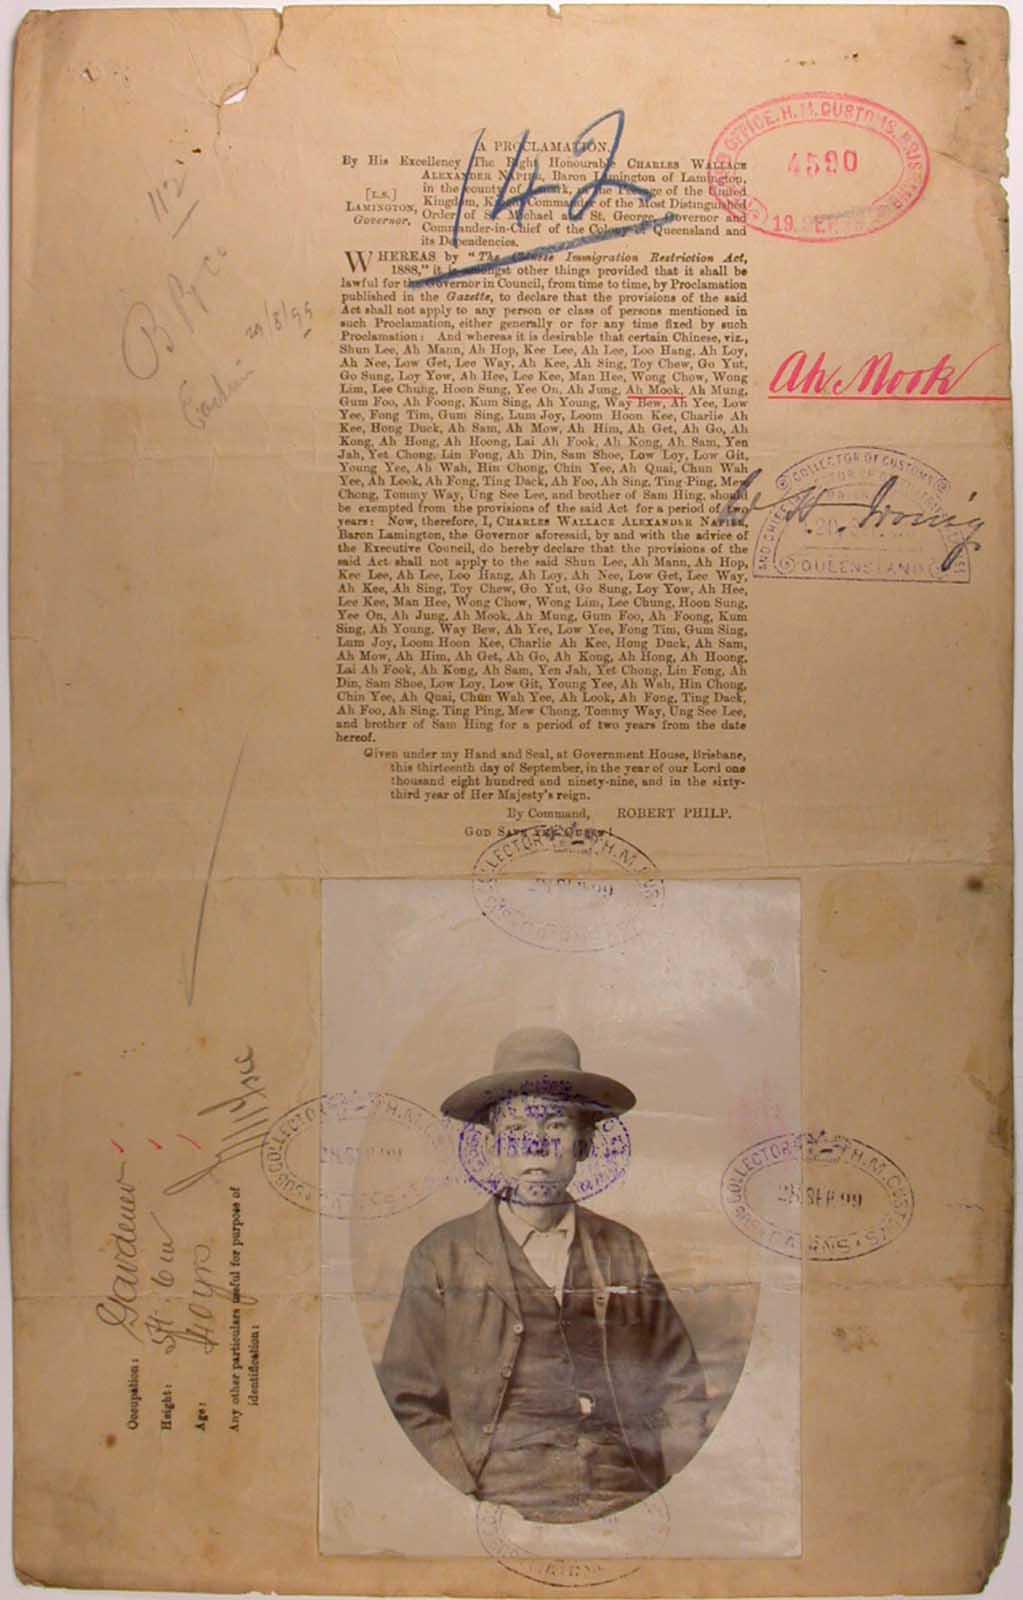 142
A PROCLAMATION.
By His Excellency The Right Honourable CHARLES WALLACE
ALEXANDER NAPIER, Baron Lamington of Lamington,
[L.S.] in the county of Lanark, in the Peerage of the United
LAMINGTON, Kingdom, Knight Commander of the Most Distinguished
Governor. Order of St. Michael and St. George, Governor and
Commander-in-Chief of the Colony of Queensland and
its Dependencies.
WHEREAS by "The Chinese Immigration Restriction Act,
1888," it is amongst other things provided that it shall be
lawful for the Governor in Council, from time to time, by Proclamation
published in the Gazette, to declare that the provisions of the said
Act shall not apply to any person or class of persons mentioned in
such Proclamation, either generally or for any time fixed by such
Proclamation: And whereas it is desirable that certain Chinese, viz.,
Shun Lee, Ah Mann, Ah Hop, Kee Lee, Ah Lee, Loo Hang, Ah Loy,
Ah Nee, Low Get, Lee Way, Ah Kee, Ah Sing, Toy Chew, Go Yut,
Go Sung, Loy Yow, Ah Hee, Lee Kee, Man Hee, Wong Chow, Wong
Lim, Lee Chung, Hoon Sung, Yee On, Ah Jung, Ah Mook, Ah Mung,
Gum Foo, Ah Foong, Kum Sing, Ah Young, Way Bew, Ah Yee, Low
Yee, Fong Tim, Gum Sing, Lum Joy, Loom Hoon Kee, Charlie Ah
Kee, Hong Duck, Ah Sam, Ah Mow, Ah Him, Ah Get, Ah Go, Ah
Kong, Ah Hong, Ah Hoong, Lai Ah Fook, Ah Kong, Ah Sam, Yen
Jah, Yet Chong, Lin Fong, Ah Din, Sam Shoe, Low Loy, Low Git,
Young Yee, Ah Wah, Hin Chong, Chin Yee, Ah Quai, Chun Wah
Yee, Ah Look, Ah Fong, Ting Dack, Ah Foo, Ah Sing, Ting Ping, Mew
Chong, Tommy Way, Ung See Lee, and brother of Sam Hing, should
be exempted from the provisions of the said Act for a period of two
years: Now, therefore, I, CHARLES WALLACE ALEXANDER NAPIER,
Baron Lamington, the Governor aforesaid, by and with the advice of
the Executive Council, do hereby declare that the provisions of the
said Act shall not apply to the said Shun Lee, Ah Mann, Ah Hop,
Kee Lee, Ah Lee, Loo Hang, Ah Loy, Ah Nee, Low Get, Lee Way,
Ah Kee, Ah Sing, Toy Chew, Go Yut, Go Sung, Loy Yow, Ah Hee,
Lee Kee, Man Hee, Wong Chow, Wong Lim, Lee Chung, Hoon Sung,
Yee On, Ah Jung, Ah Mook, Ah Mung, Gum Foo, Ah Foong, Kum
Sing, Ah Young, Way Bew, Ah Yee, Low Yee, Fong Tim, Gum Sing,
Lum Joy, Loom Hoon Kee, Charlie Ah Kee, Hong Duck, Ah Sam,
Ah Mow, Ah Him, Ah Get, Ah Go, Ah Kong, Ah Hong, Ah Hoong,
Lai Ah Fook, Ah Kong, Ah Sam, Yen Jah, Yet Chong, Lin Fong, Ah
Din, Sam Shoe, Low Loy, Low Git, Young Yee, Ah Wah, Hin Chong,
Chin Yee, Ah Quai, Chun Wah Yee, Ah Look, Ah Fong, Ting Dack,
Ah Foo, Ah Sing, Ting Ping, Mew Chong, Tommy Way, Ung See Lee,
and brother of Sam Hing for a period of two years from the date
hereof.
Given under my Hand and Seal, at Government House, Brisbane,
this thirteenth day of September, in the year of our Lord one
thousand eight hundred and ninety-nine, and in the sixty-
third year of Her Majesty's reign.
By Command, ROBERT PHILP.
GOD SAVE THE QUEEN!
OFFICE, H.M. CUSTOMS, BRISBANE
4590
19 SEP
Ah Mook
COLLECTOR OF CUSTOMS
QUEENSLAND
W. H. Irving
112
29/8/99
COLLECTOR H.M. CUS
SUB COLLECTOR H.M. CUS
SUB COLLECTOR H.M. CUSTOMS
28 SEP 99
CAIRNS
Occupation: Gardener
Height: 5ft. 6in
Age: 40 yrs
Any other particulars useful for purpose of
identification: